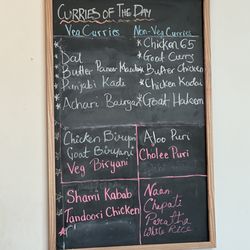 CURRIES OF THE DAY
Veg Curries
Non-Veg Curries
* Dal
* Butter Paneer Masala
* Punjabi Kadi
* Achari Baingan
* Chicken 65
* Goat Curry
* Butter Chicken
* Chicken Kadai
* Goat Haleem
Chicken Biryani
Goat Biryani
Veg Biryani
Aloo Puri
Cholee Puri
* Shami Kabab
* Tandoori Chicken
Naan
Chapati
Paratha
White Rice